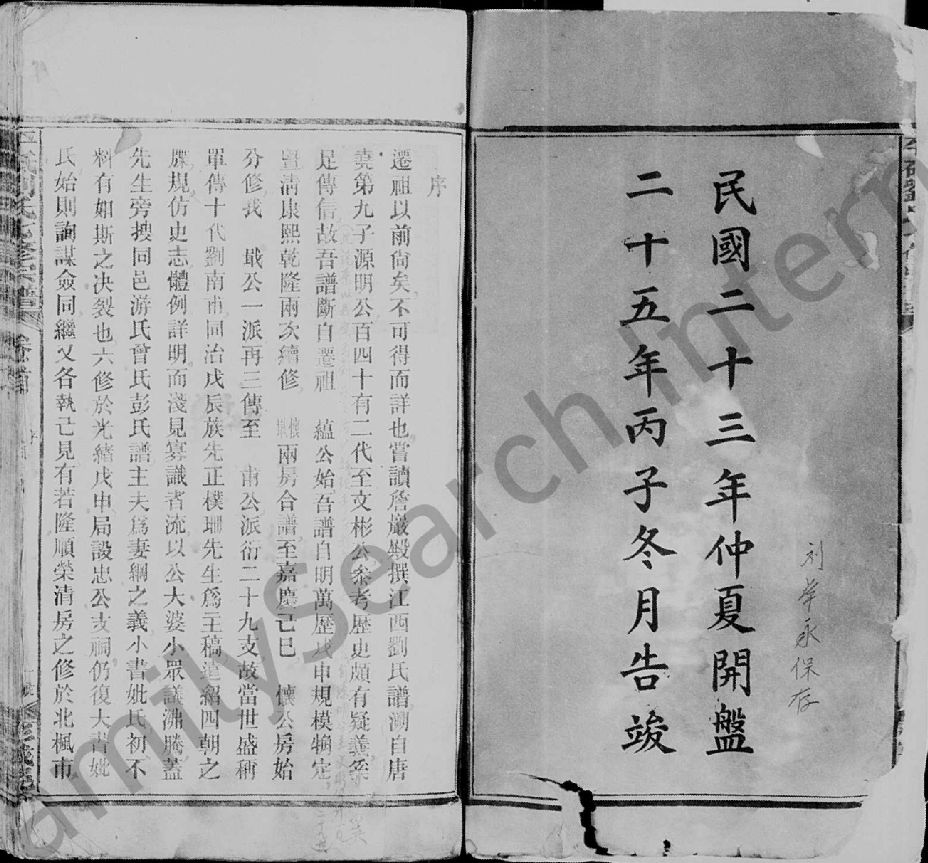 民國二十三年仲夏開盤
二十五年丙子冬月告竣
保存
序
遷祖以前尙矣不可得而詳也嘗讀詹巖毀撰江西劉氏譜溯自唐
堯第九子源明公百四十有二代至文彬公叅考歷史頗有疑義筞
是傳信故吾譜斷自遷祖 蘊公始吾譜自明萬歷戊申規模犆定
曁淸康熙乾隆兩次續修 懷 兩房合譜至嘉慶己巳 懷公房始
分修我 戢公一派再三傳至 甫公派衍二十九支故當世盛稱
單傳十代劉南甫同治戊辰族先正樸珊先生爲主稿遠紹四朝之
牒規仿史志體例詳明而淺見寡識者流以公大婆小眾議沸騰蓋
先生旁搜同邑游氏曾氏彭氏譜主夫爲妻綱之義小書妣氏初不
料有如斯之决裂也六修於光緖戊申局設忠公支祠仍復大書妣
氏始則詢謀僉同繼又各執己見有若隆順榮淸房之修於北楓市
卷首
FamilySearch Intern